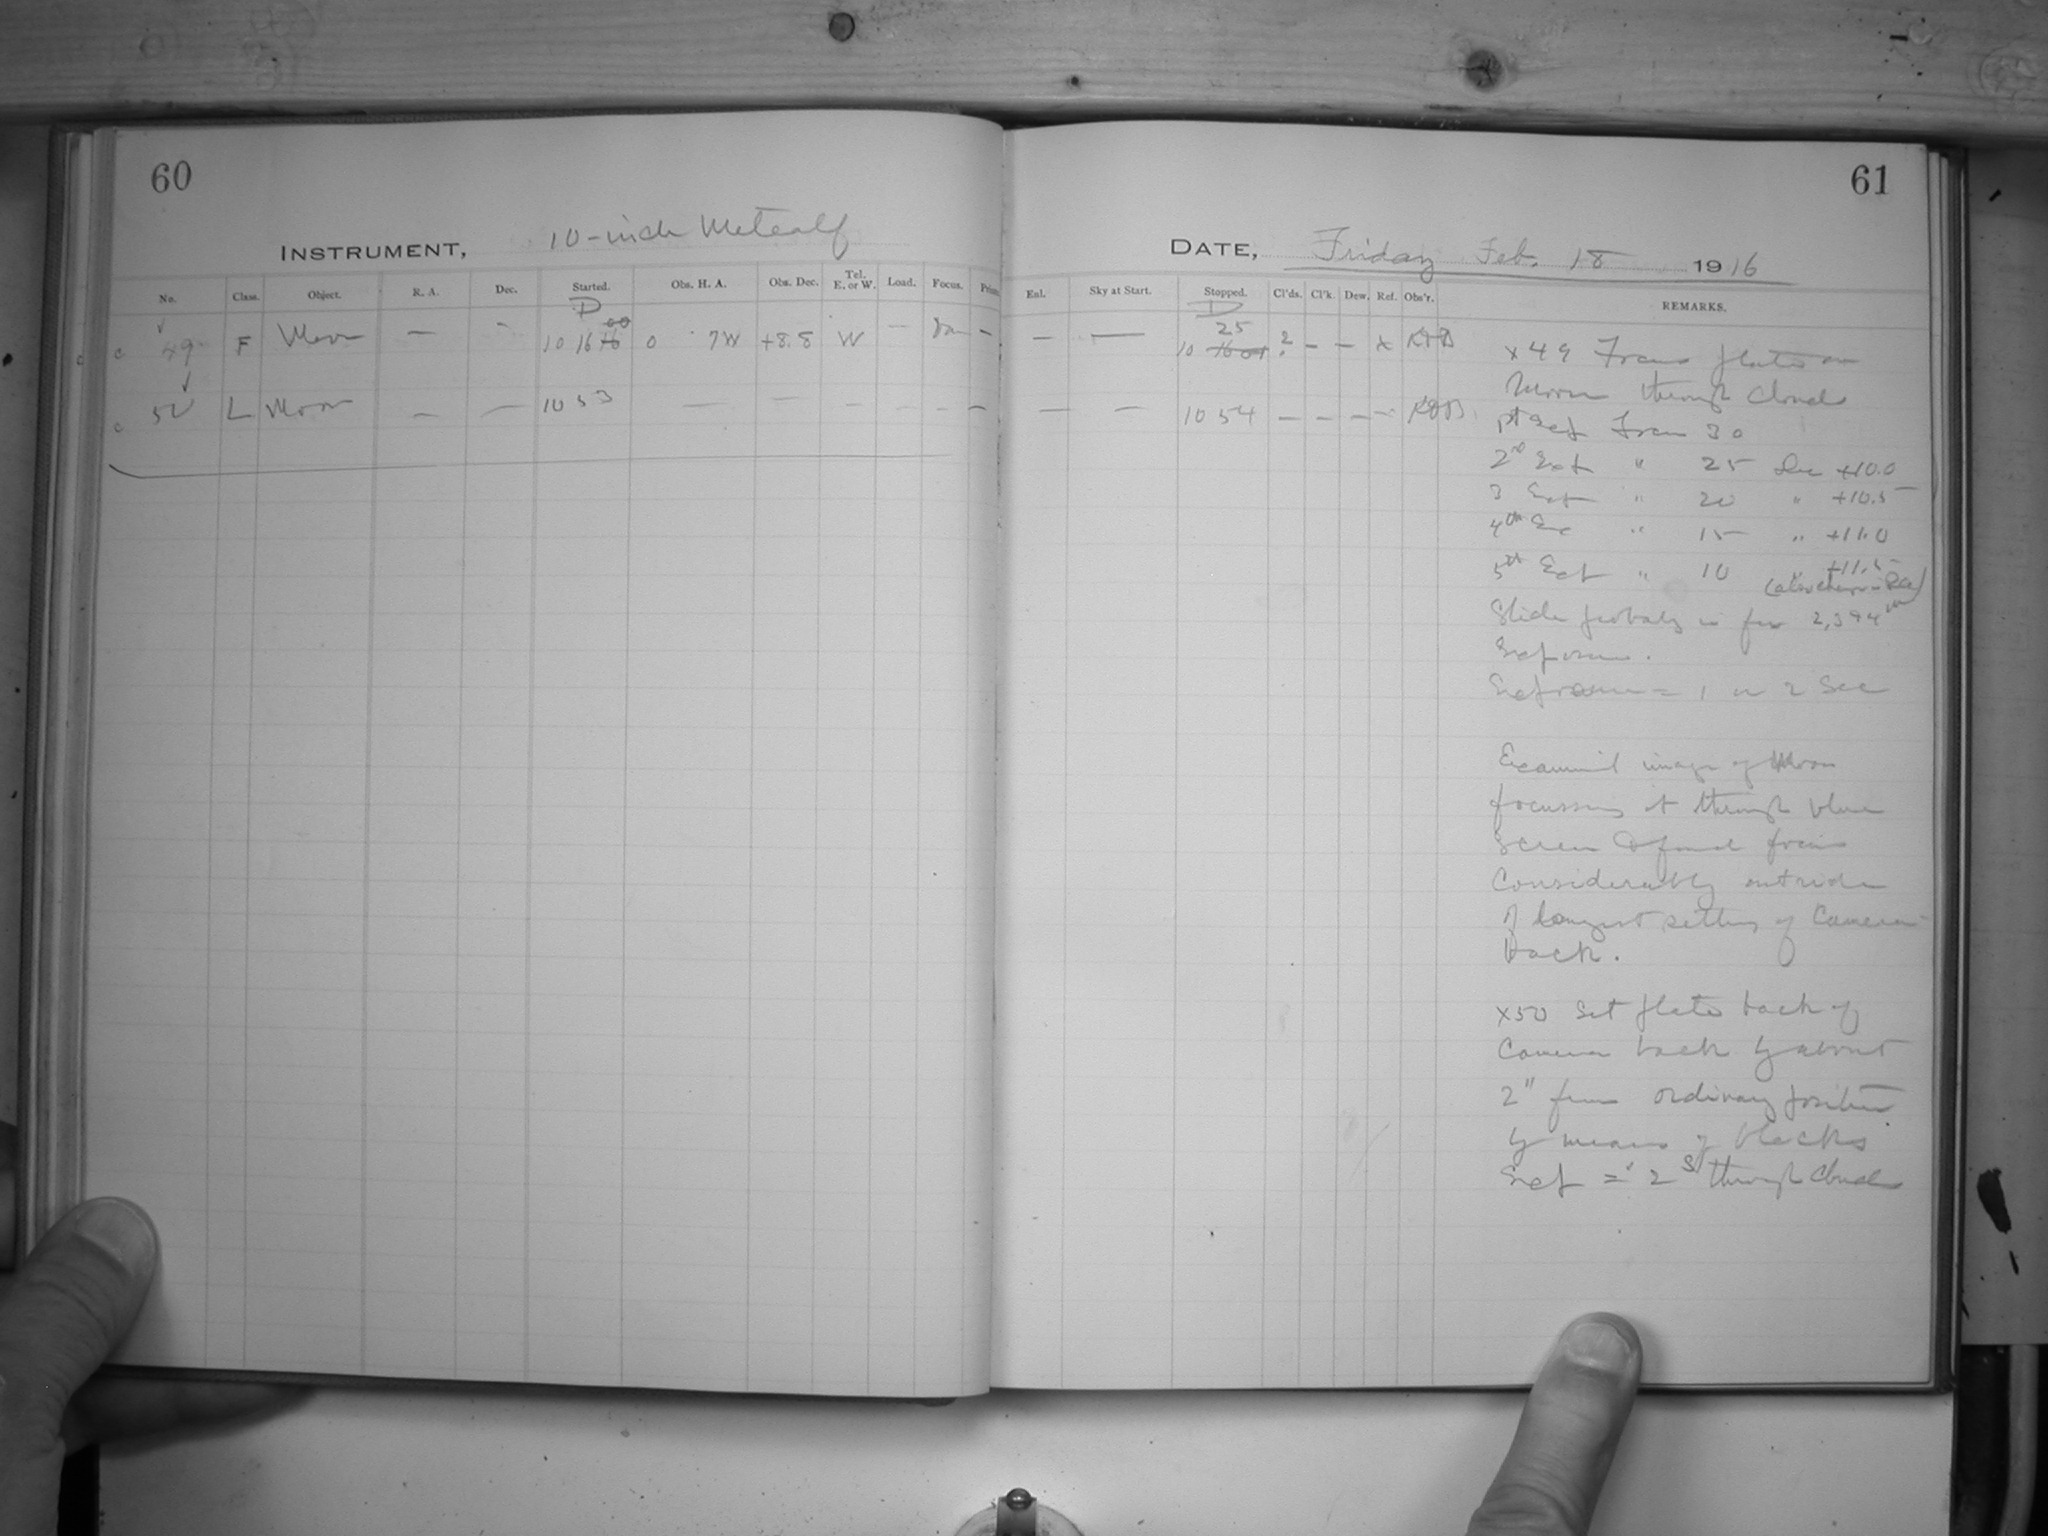 60
INSTRUMENT, 10-inch Metcalf
No. Class. Object. R. A. Dec. Started. Obs. H. A. Obs. Dec. Tel. E. or W. Load. Focus.
D
49 F Moon — - 10 16 0 7W +8.8 W — —
50 L Moon — — 10 53 — — — — — —
61
DATE, Friday Feb. 18 1916
Enl. Sky at Start. Stopped. Cl'ds. Cl'k. Dew. Ref. Obs'r. REMARKS.
D
— — 10 25 2 — — x
— — 10 54 — — — -
x49 Focus plate on
Moon through clouds
1st Exp Focus 30
2nd Ext " 25 Dec +10.0
3 Ext " 20 " +10.5
4th Exp " 15 " +11.0
5th Ext " 10 " +11.5
Slide probably in for
Exposure.
Exposure = 1 or 2 Sec
Examined image of Moon
focussing it through blue
Screen & found focus
Considerably outside
of longest setting of Camera
back.
x50 Set plate back of
Camera back by about
2" from ordinary position
by means of blocks
Exp = 2 s through Clouds